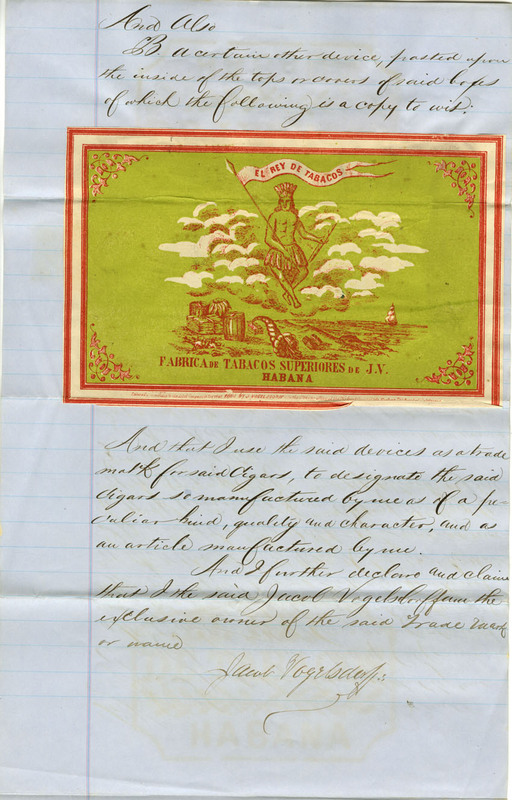 And Also
B a certain other device, pasted upon
the inside of the tops or covers of said boxes
of which the following is a copy to wit:
EL REY DE TABACOS
FABRICA DE TABACOS SUPERIORES DE J.V.
HABANA
And that I use the said devices as a trade
mark for said Cigars, to designate the said
Cigars so manufactured by me as of a pe-
culiar kind, quality and character, and as
an article manufactured by me.
And I further declare and claim
that I the said Jacob Vogelsdorff am the
exclusive owner of the said Trade Mark
or name
Jacob Vogelsdorff